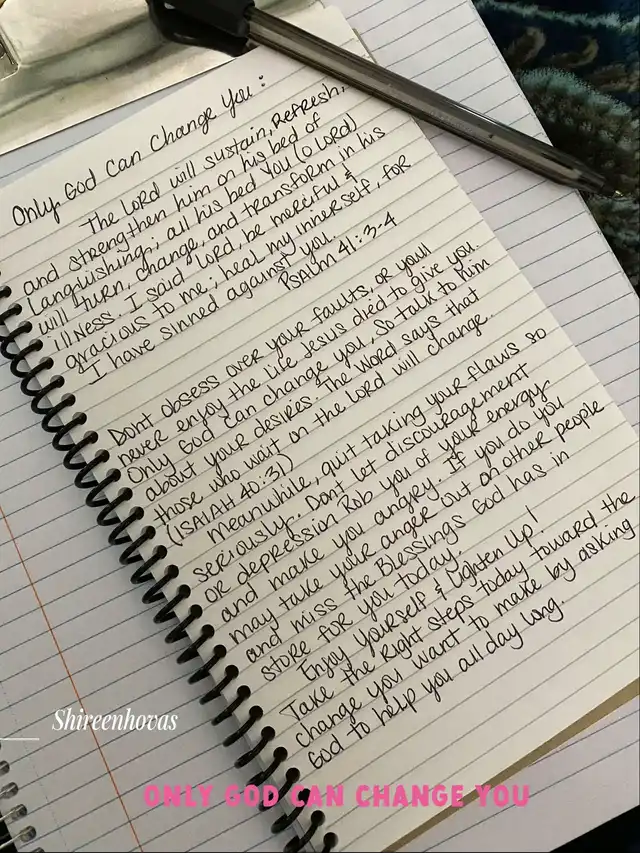 Only God Can Change You:
The Lord will sustain, Refresh,
and strengthen him on his bed of
Languishing; all his bed You (O Lord)
will turn, change, and transform in his
illness. I said Lord, be merciful &
gracious to me; heal my innerself, for
I have sinned against you.
Psalm 41:3-4
Dont obsess over your faults, or you'll
never enjoy the life Jesus died to give you.
Only God can change you, so talk to Him
about your desires. The Word says that
those who wait on the Lord will change.
(ISAIAH 40:31)
Meanwhile, quit taking your flaws so
seriously. Dont let discouragement
or depression Rob you of your energy
and make you angry. If you do you
may take your anger out on other people
and miss the Blessings God has in
store for you today.
Enjoy yourself & Lighten Up!
Take the Right steps today toward the
change you want to make by asking
God to help you all day long.
Shireenhovas
ONLY GOD CAN CHANGE YOU